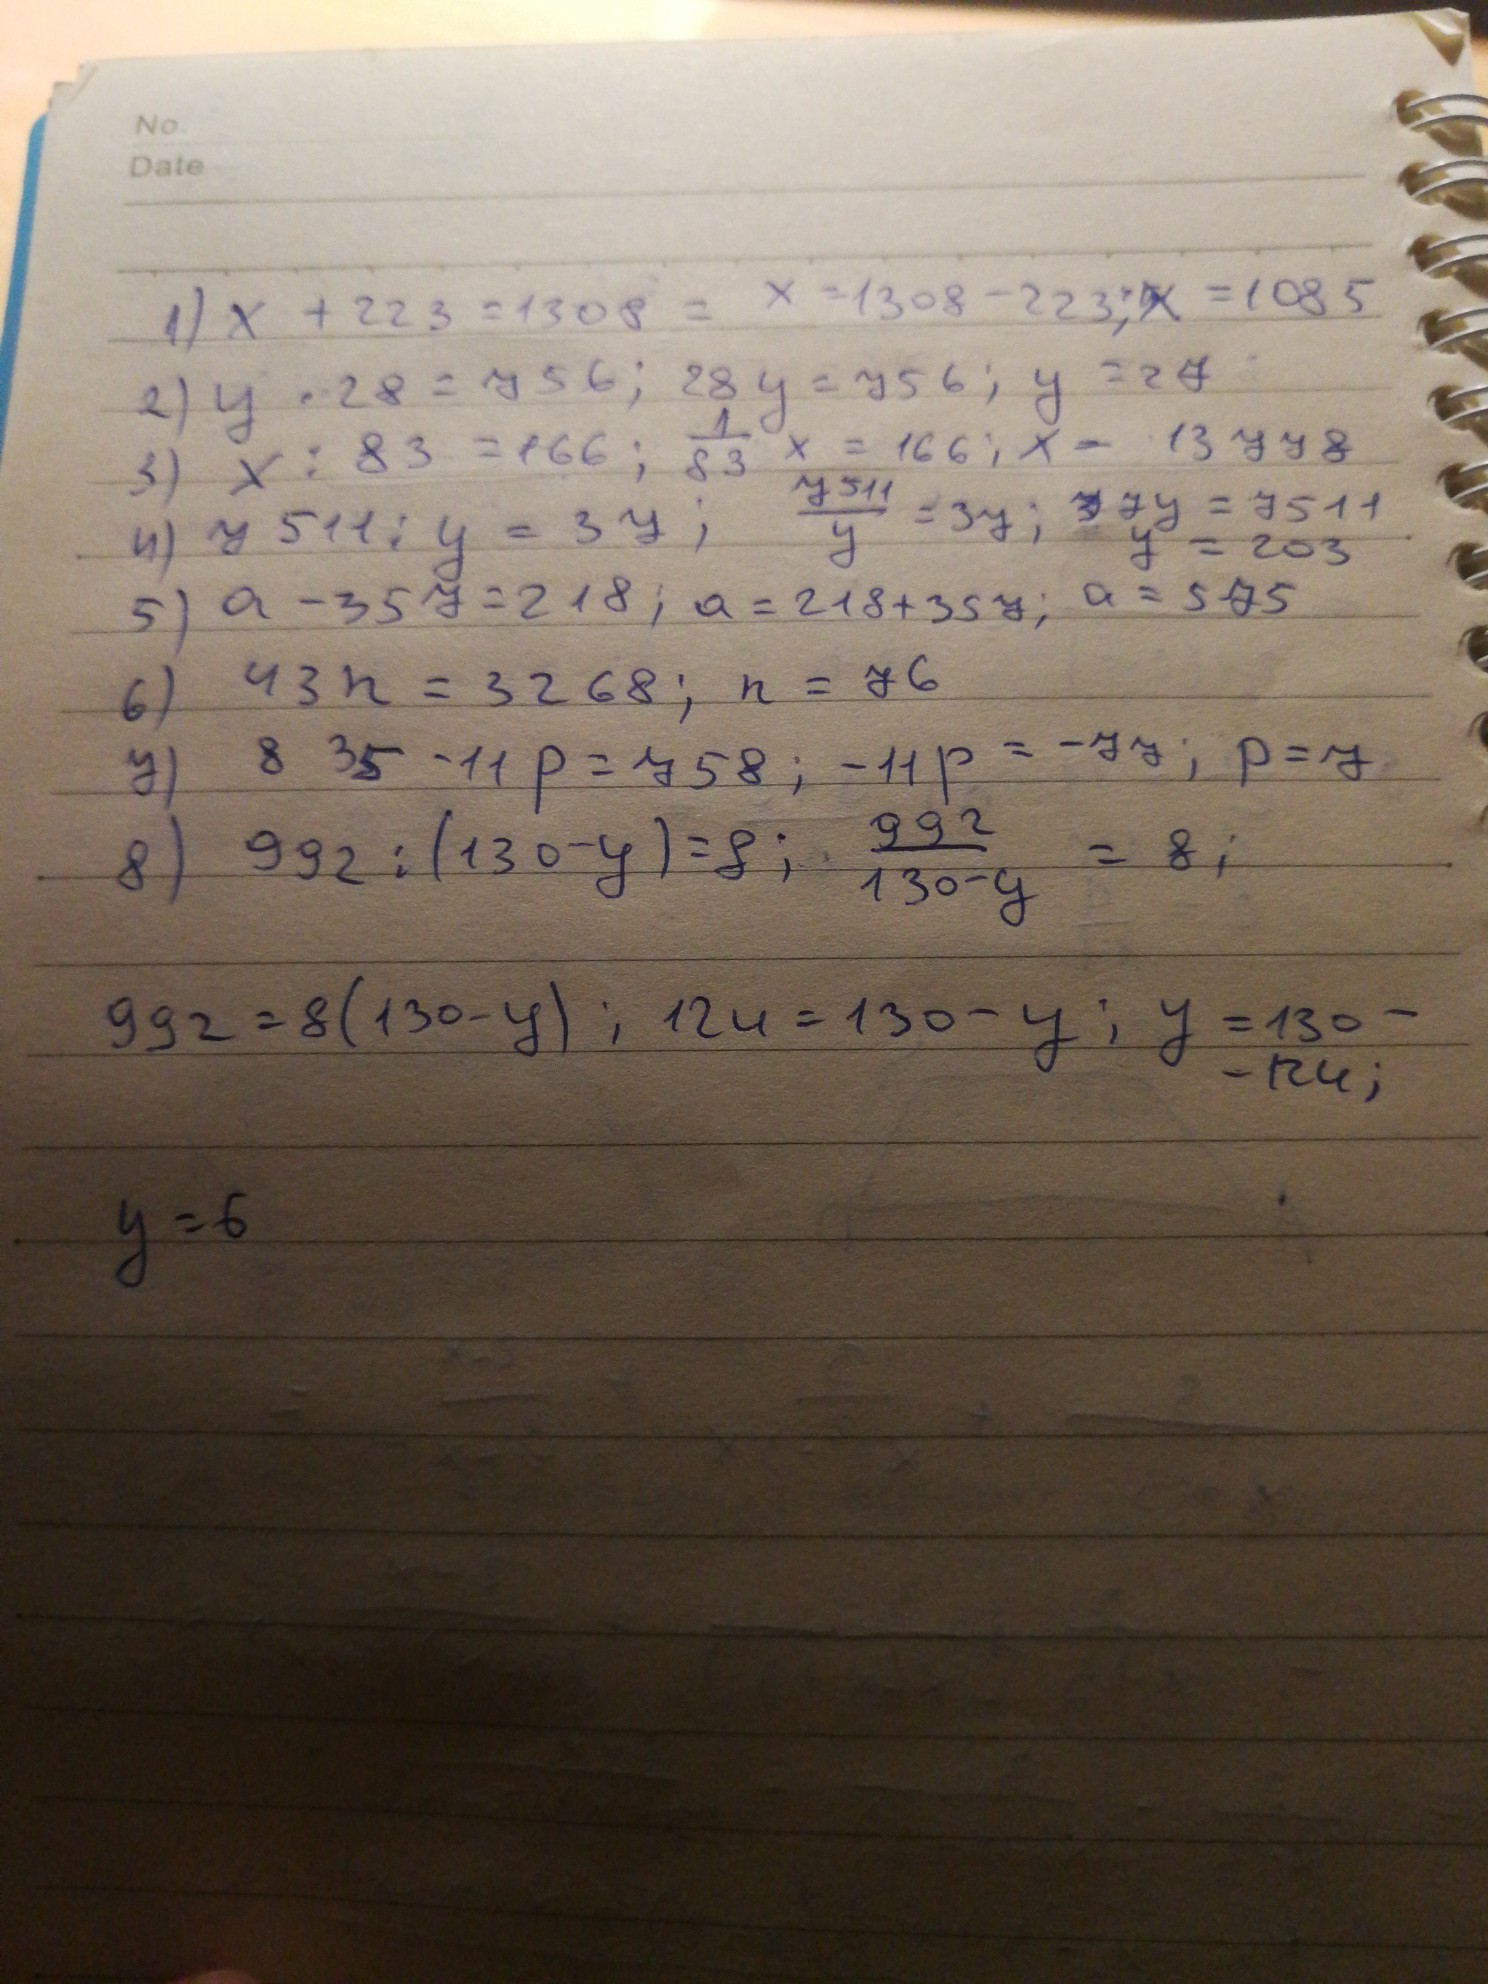 No.
Date
1) x + 223 = 1308 = x = 1308 - 223; x = 1085
2) y · 28 = 756; 28y = 756; y = 27
3) x : 83 = 166; 1/83 x = 166; x = 13778
4) 7511 : y = 37; 7511/y = 37; 37y = 7511
y = 203
5) a - 357 = 218; a = 218 + 357; a = 575
6) 43n = 3268; n = 76
7) 835 - 11p = 758; -11p = -77; p = 7
8) 992 : (130 - y) = 8; 992/130-y = 8;
992 = 8(130 - y); 124 = 130 - y; y = 130 -
- 124;
y = 6